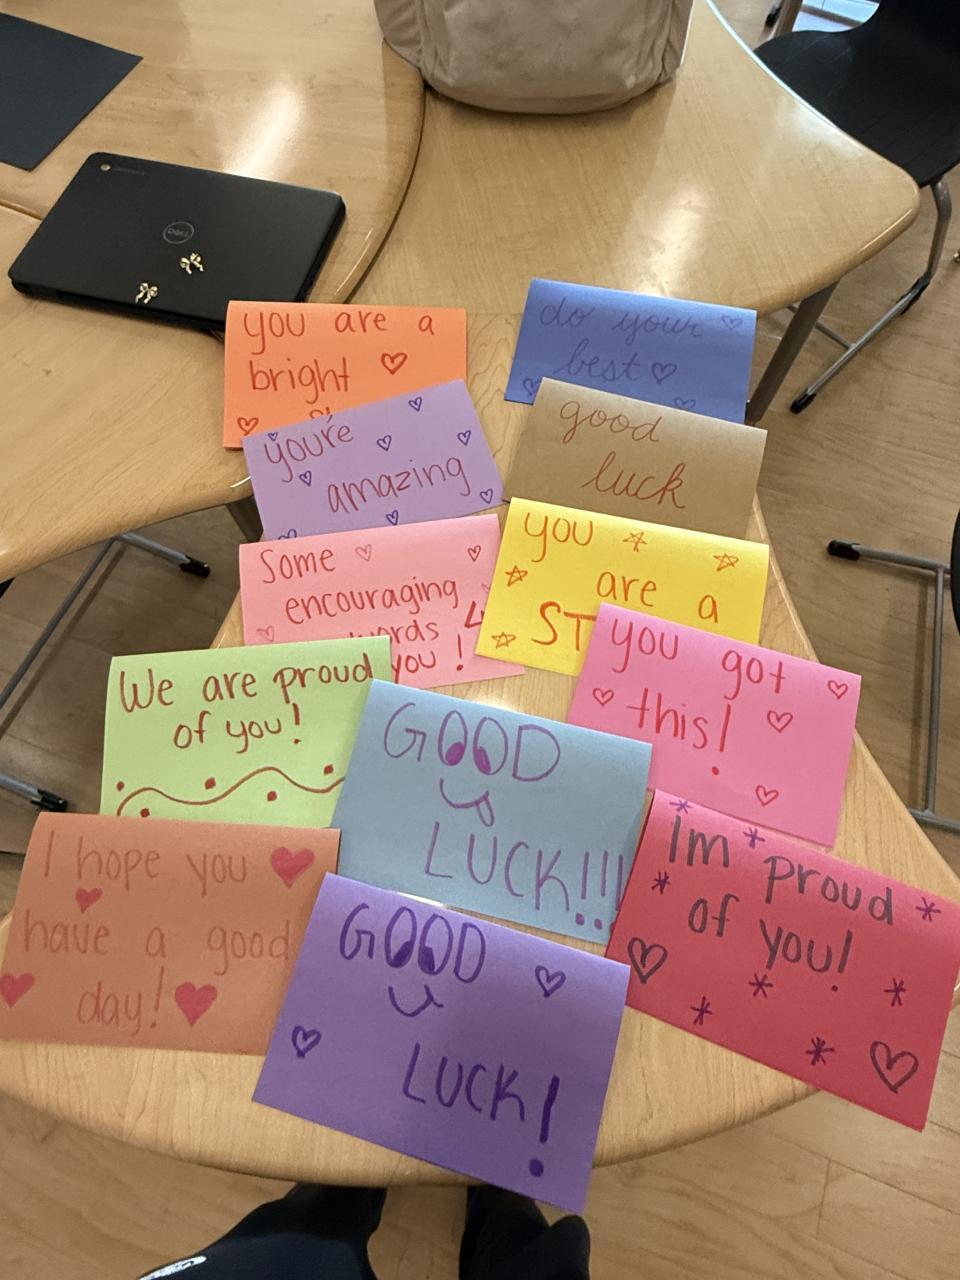 DELL
you are a
bright
do your
best
you're
amazing
good
luck
Some
encouraging
words 4
you!
you
are a
We are proud
of you!
you got
this!
GOOD
LUCK!!!
I hope you
have a good
day!
GOOD
LUCK!
im proud
of you!